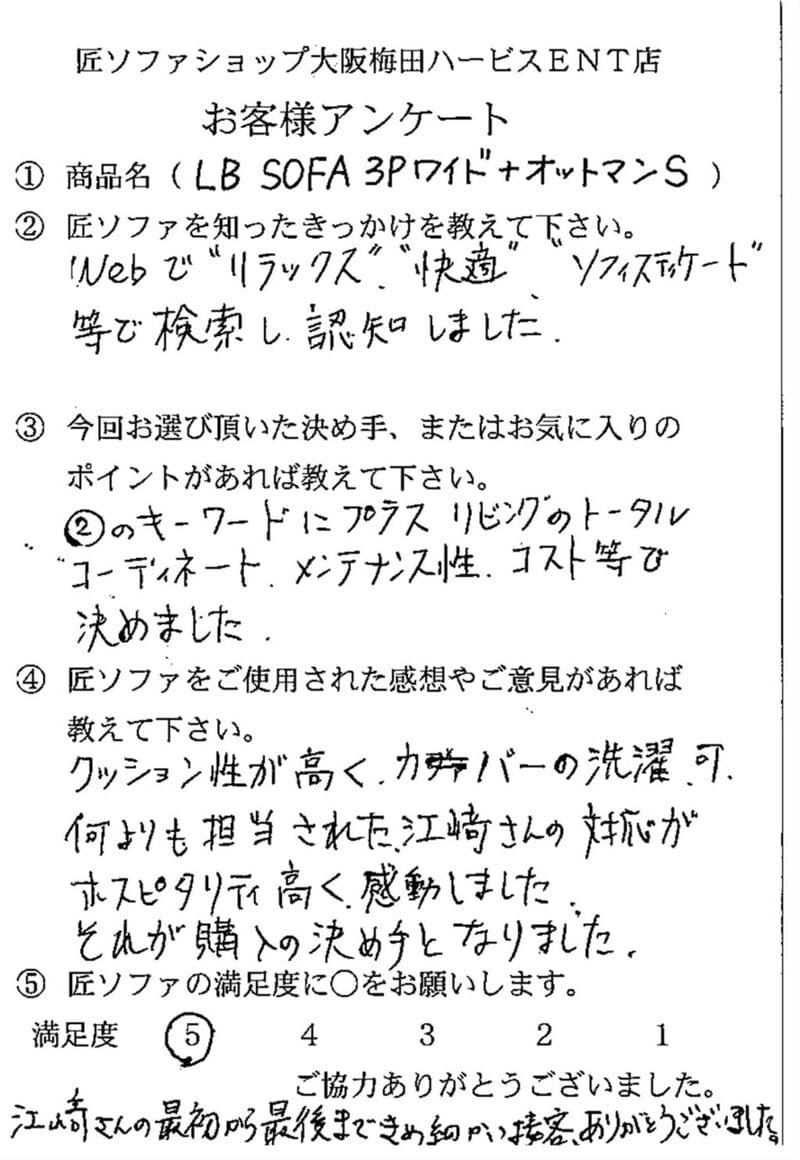 匠ソファショップ大阪梅田ハービスＥＮＴ店
お客様アンケート
① 商品名（ LB SOFA 3Pワイド+オットマンS ）
② 匠ソファを知ったきっかけを教えて下さい。
Webで"リラックス"、"快適"、"ソフィスティケード"
等で検索し、認知しました.
③ 今回お選び頂いた決め手、またはお気に入りの
ポイントがあれば教えて下さい。
②のキーワードにプラスリビングのトータル
コーディネート、メンテナンス性、コスト等で
決めました.
④ 匠ソファをご使用された感想やご意見があれば
教えて下さい。
クッション性が高く、カバーの洗濯可.
何よりも担当された、江崎さんの対応が
ホスピタリティ高く、感動しました.
それが購入の決め手となりました.
⑤ 匠ソファの満足度に○をお願いします。
満足度 5 4 3 2 1
ご協力ありがとうございました。
江崎さんの最初から最後まできめ細かい接客、ありがとうございました。